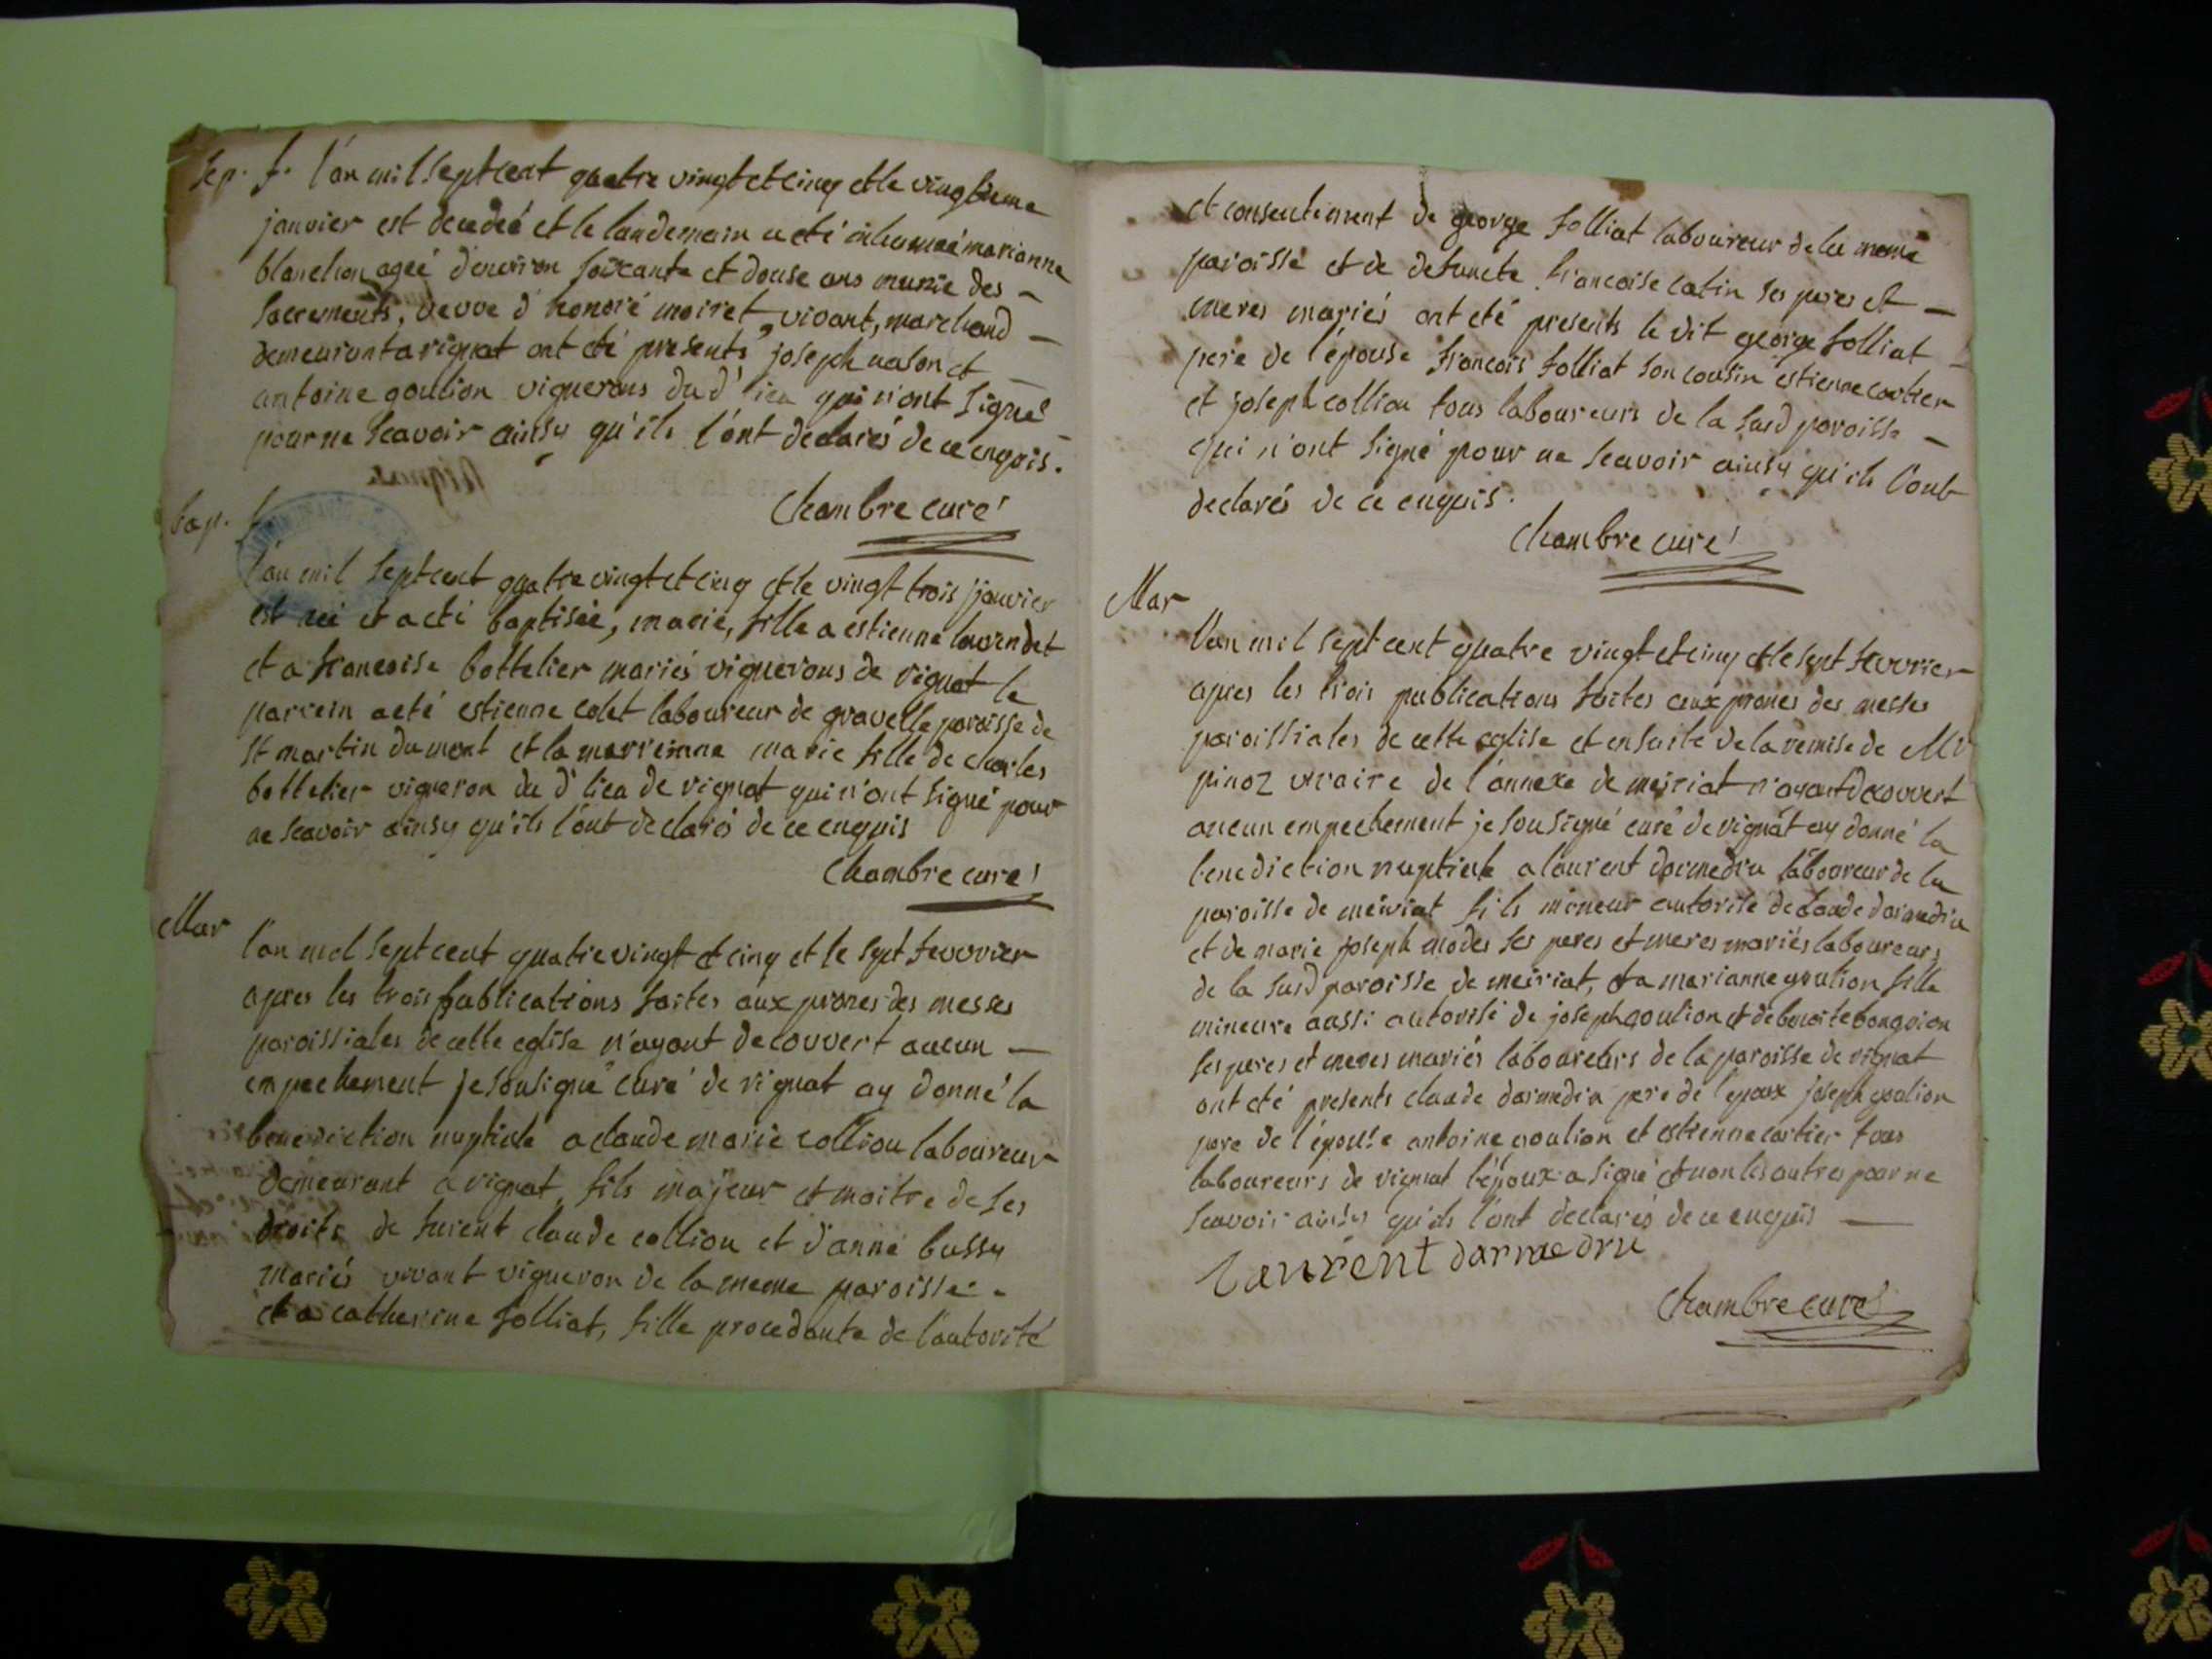 Sep. f. l'an mil sept cent quatre vingt et cinq et le vingtieme
janvier est decedeé et le landemain a eté inhumeé marianne
blanchon ageé denviron soixante et douse ans munie des –
sacrements, veuve d'honoré moiret, vivant, marchand –
demeurant a rignat ont eté presents joseph nason et –
antoine goulion vignerons du d' lieu qui n'ont signé
pour ne scavoir ainsy qu'ils l'ont declarés de ce enquis. –
Chambre curé
bap. f
l'an mil sept cent quatre vingt et cinq et le vingt trois janvier
est neé et a eté baptiseé, marie, fille a estienne
et a francoise bottelier mariés vignerons de rignat le
parrein a eté estienne colet laboureur de gravelle paroisse de
St martin du mont et la marreinne marie fille de charles
bottelier vigneron du d' lieu de rignat qui n'ont signé pour
ne scavoir ainsy qu'ils l'ont declarés de ce enquis
Chambre curé
Mar
l'an mil sept cent quatre vingt et cinq et le sept fevvrier
apres les trois publications faites aux prones des messes
paroissiales de cette eglise n'ayant decouvert aucun –
empechement je sousigné curé de rignat ay donné la
benediction nuptiale a claude marie colliou laboureur
demeurant a rignat, fils majeur et maitre de ses
droits de furent claude colliou et d'anne bussy
mariés vivant vigneron de la meme paroisse.
et a catherine folliat, fille procedante de l'autorité
et consentement de george folliat laboureur de la meme
paroisse et de defuncte francoise catin ses peres et –
meres mariés ont eté presents le dit george folliat –
pere de l'epouse francois folliat son cousin estienne cartier
et joseph colliou tous laboureurs de la susd paroisse –
qui n'ont signé pour ne scavoir ainsy qu'ils l'ont
declarés de ce enquis.
Chambre curé
Mar
l'an mil sept cent quatre vingt et cinq et le sept fevvrier
apres les trois publications faites aux prones des messes
paroissiales de cette eglise et ensuite de la remise de Mr
pinoz vicaire de l'annexe de meiriat n'ayant decouvert
aucun empechement je sousigné curé de rignat ay donné la
benediction nuptiale a laurent darmedru laboureur de la
paroisse de meiriat fils mineur autorisé de claude darmedru
et de marie joseph modes ses peres et meres mariés laboureurs
de la susd paroisse de meiriat, et a marianne goulion fille
mineure aussi autorisé de joseph goulion et de benoite
ses peres et meres mariés laboureurs de la paroisse de rignat
ont eté presents claude darmedru pere de l'epoux joseph goulion
pere de l'epouse antoine goulion et estienne cartier tous
laboureurs de rignat l'epoux a signé et non les autres pour ne
scavoir ainsy qu'ils l'ont declarés de ce enquis –
Laurent darmedru
Chambre curé